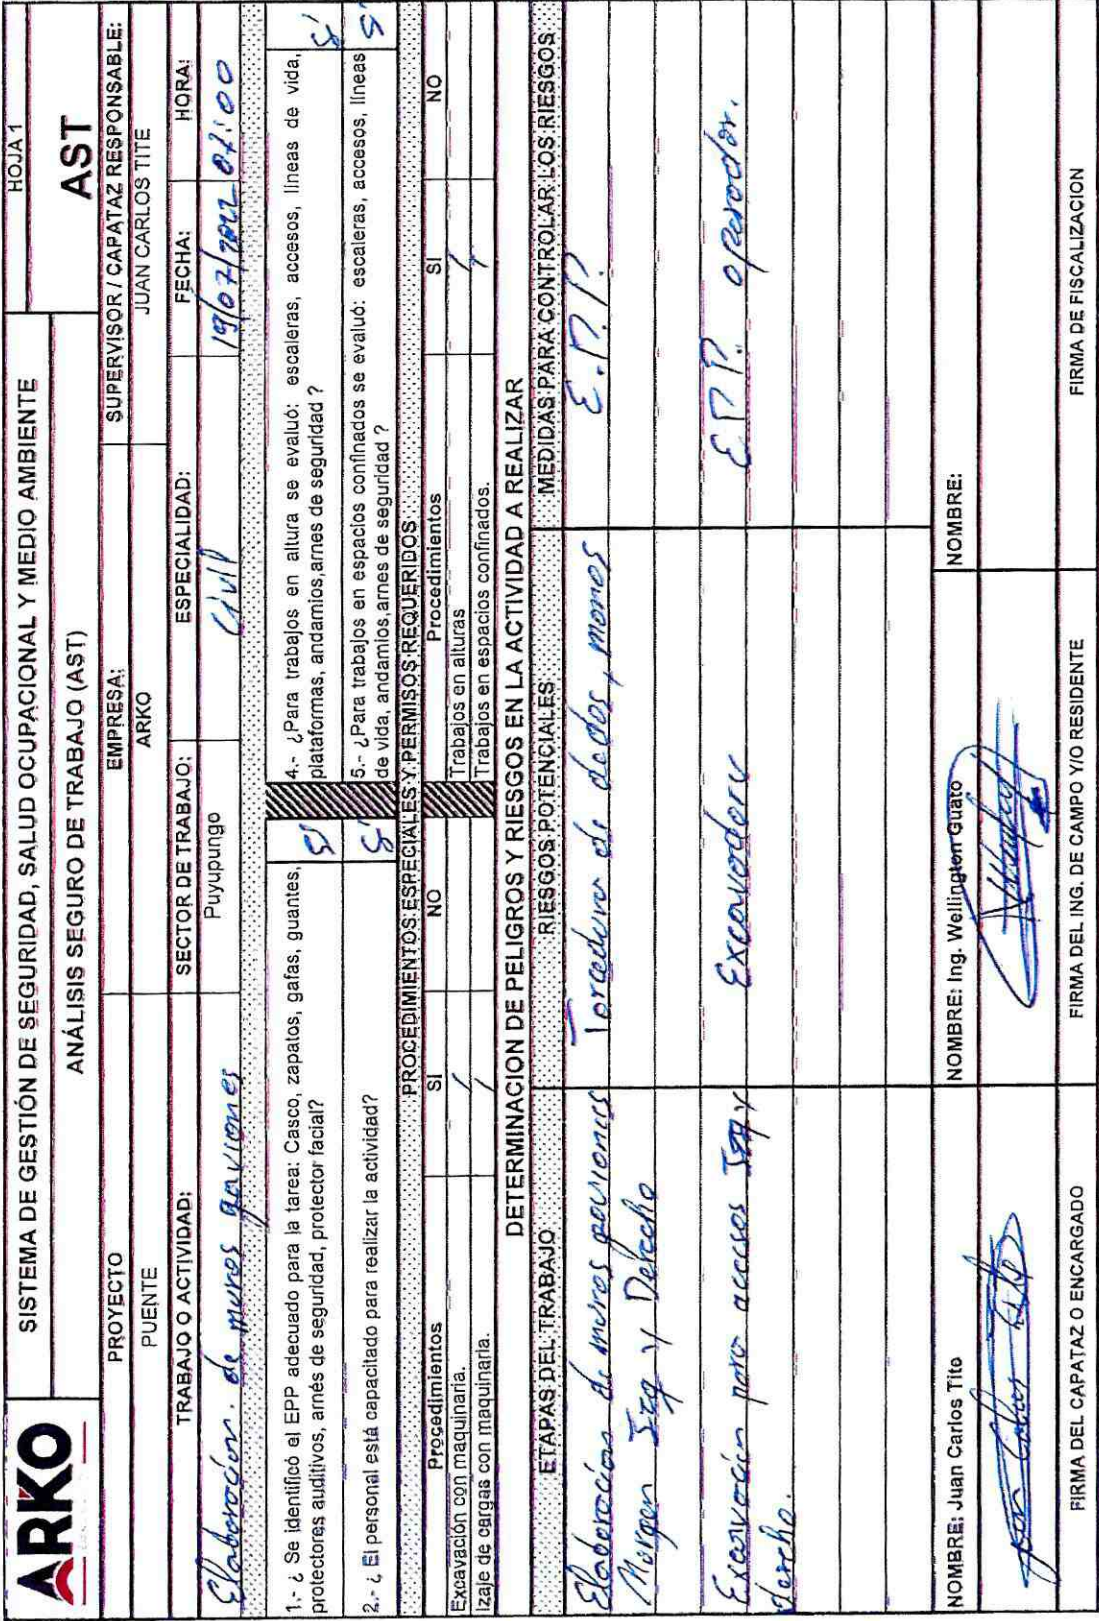 ARKO
SISTEMA DE GESTIÓN DE SEGURIDAD, SALUD OCUPACIONAL Y MEDIO AMBIENTE
HOJA 1
ANÁLISIS SEGURO DE TRABAJO (AST)
AST
PROYECTO
EMPRESA:
SUPERVISOR / CAPATAZ RESPONSABLE:
PUENTE
ARKO
JUAN CARLOS TITE
TRABAJO O ACTIVIDAD:
SECTOR DE TRABAJO:
ESPECIALIDAD:
FECHA:
HORA:
Elaboración de muros gaviones
Puyupungo
Civil
19/07/2022
07:00
1.- ¿ Se identificó el EPP adecuado para la tarea: Casco, zapatos, gafas, guantes,
protectores auditivos, arnés de seguridad, protector facial?
Sí
4.- ¿Para trabajos en altura se evaluó: escaleras, accesos, líneas de vida,
plataformas, andamios,arnes de seguridad ?
Sí
2.- ¿ El personal está capacitado para realizar la actividad?
Sí
5.- ¿Para trabajos en espacios confinados se evaluó: escaleras, accesos, líneas
de vida, andamios,arnes de seguridad ?
Sí
PROCEDIMIENTOS ESPECIALES Y PERMISOS REQUERIDOS
Procedimientos
SI
NO
Procedimientos
SI
NO
Excavación con maquinaria.
/
Trabajos en alturas
/
Izaje de cargas con maquinaria.
/
Trabajos en espacios confinados.
/
DETERMINACION DE PELIGROS Y RIESGOS EN LA ACTIVIDAD A REALIZAR
ETAPAS DEL TRABAJO
RIESGOS POTENCIALES
MEDIDAS PARA CONTROLAR LOS RIESGOS
Elaboración de muros gaviones
Torcedura de dedos, manos
E.P.P.
Margen Izq y Derecho
Excavación para accesos Izq y
Excavadora
E.P.P. operador.
derecho.
NOMBRE: Juan Carlos Tito
NOMBRE: Ing. Wellington Guato
NOMBRE:
FIRMA DEL CAPATAZ O ENCARGADO
FIRMA DEL ING. DE CAMPO Y/O RESIDENTE
FIRMA DE FISCALIZACION